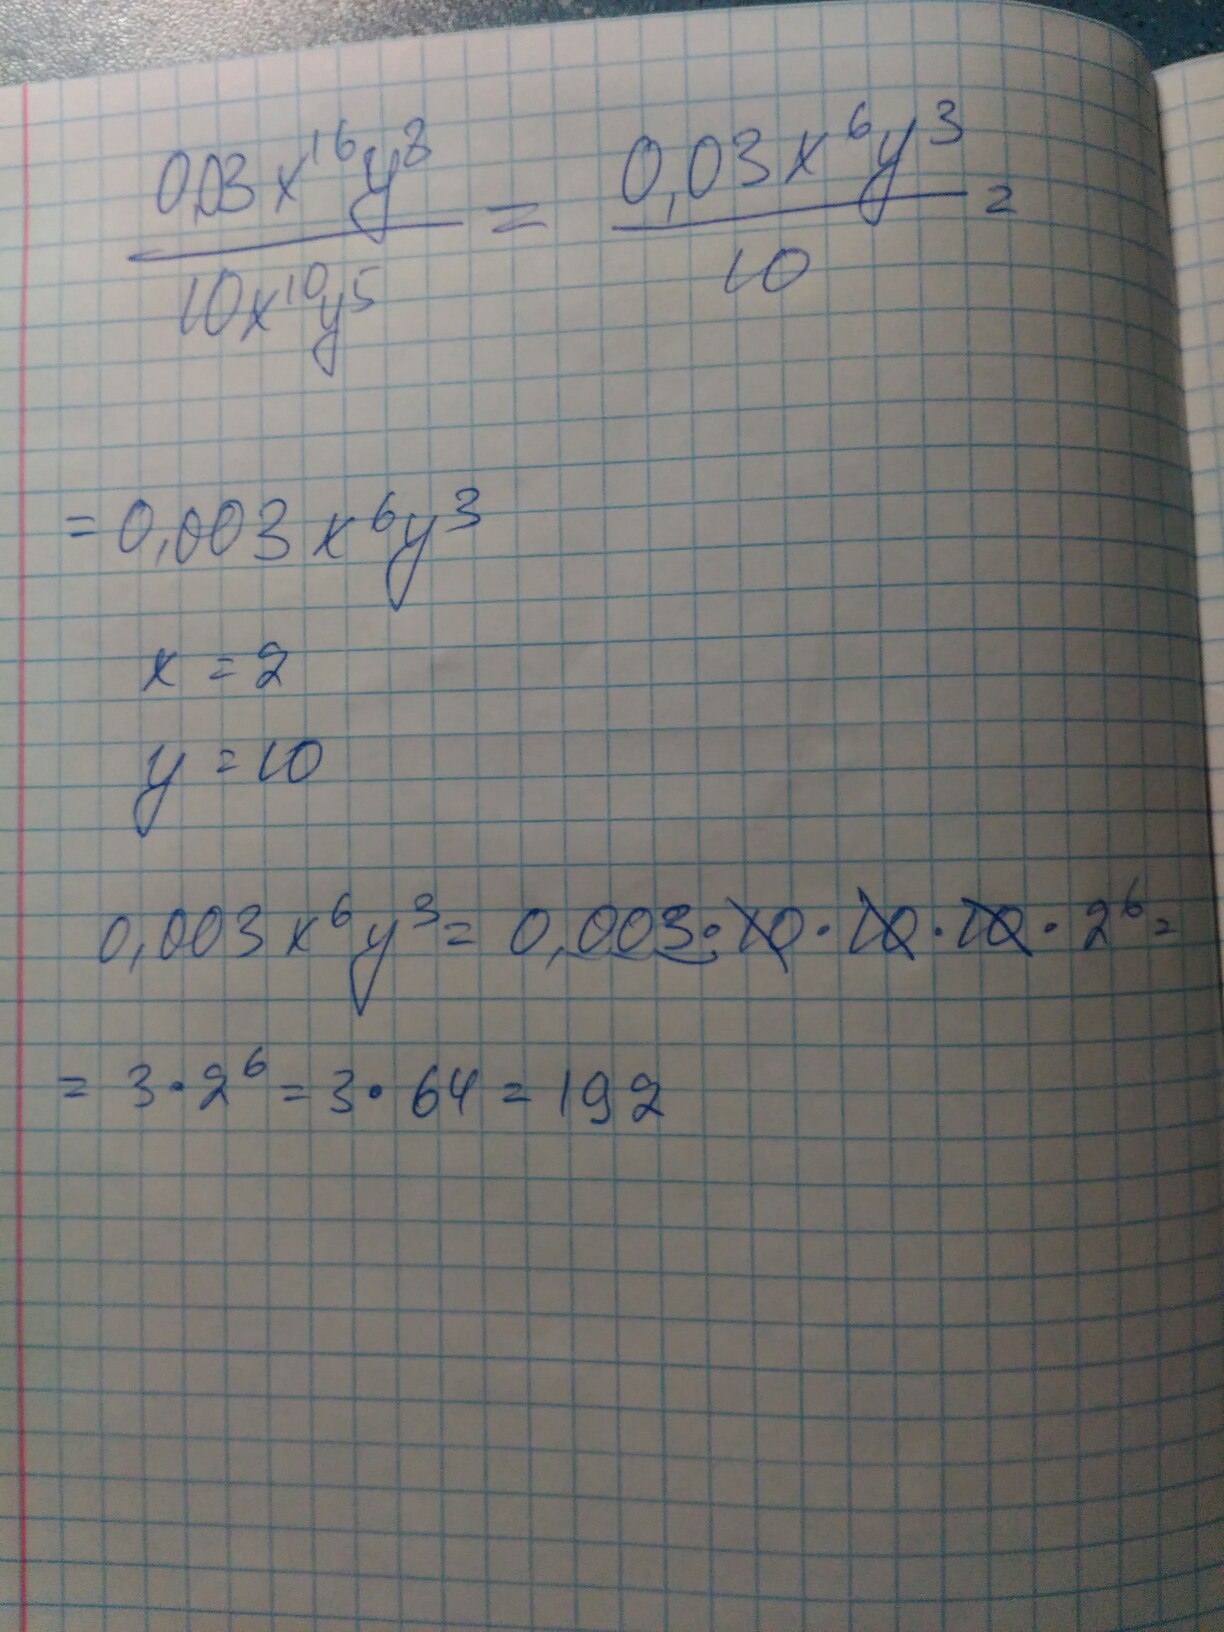 0,03x¹⁶y⁸/10x¹⁰y⁵ = 0,03x⁶y³/10 =
= 0,003x⁶y³
x = 2
y = 10
0,003x⁶y³ = 0,003·10·10·10·2⁶ =
= 3·2⁶ = 3·64 = 192